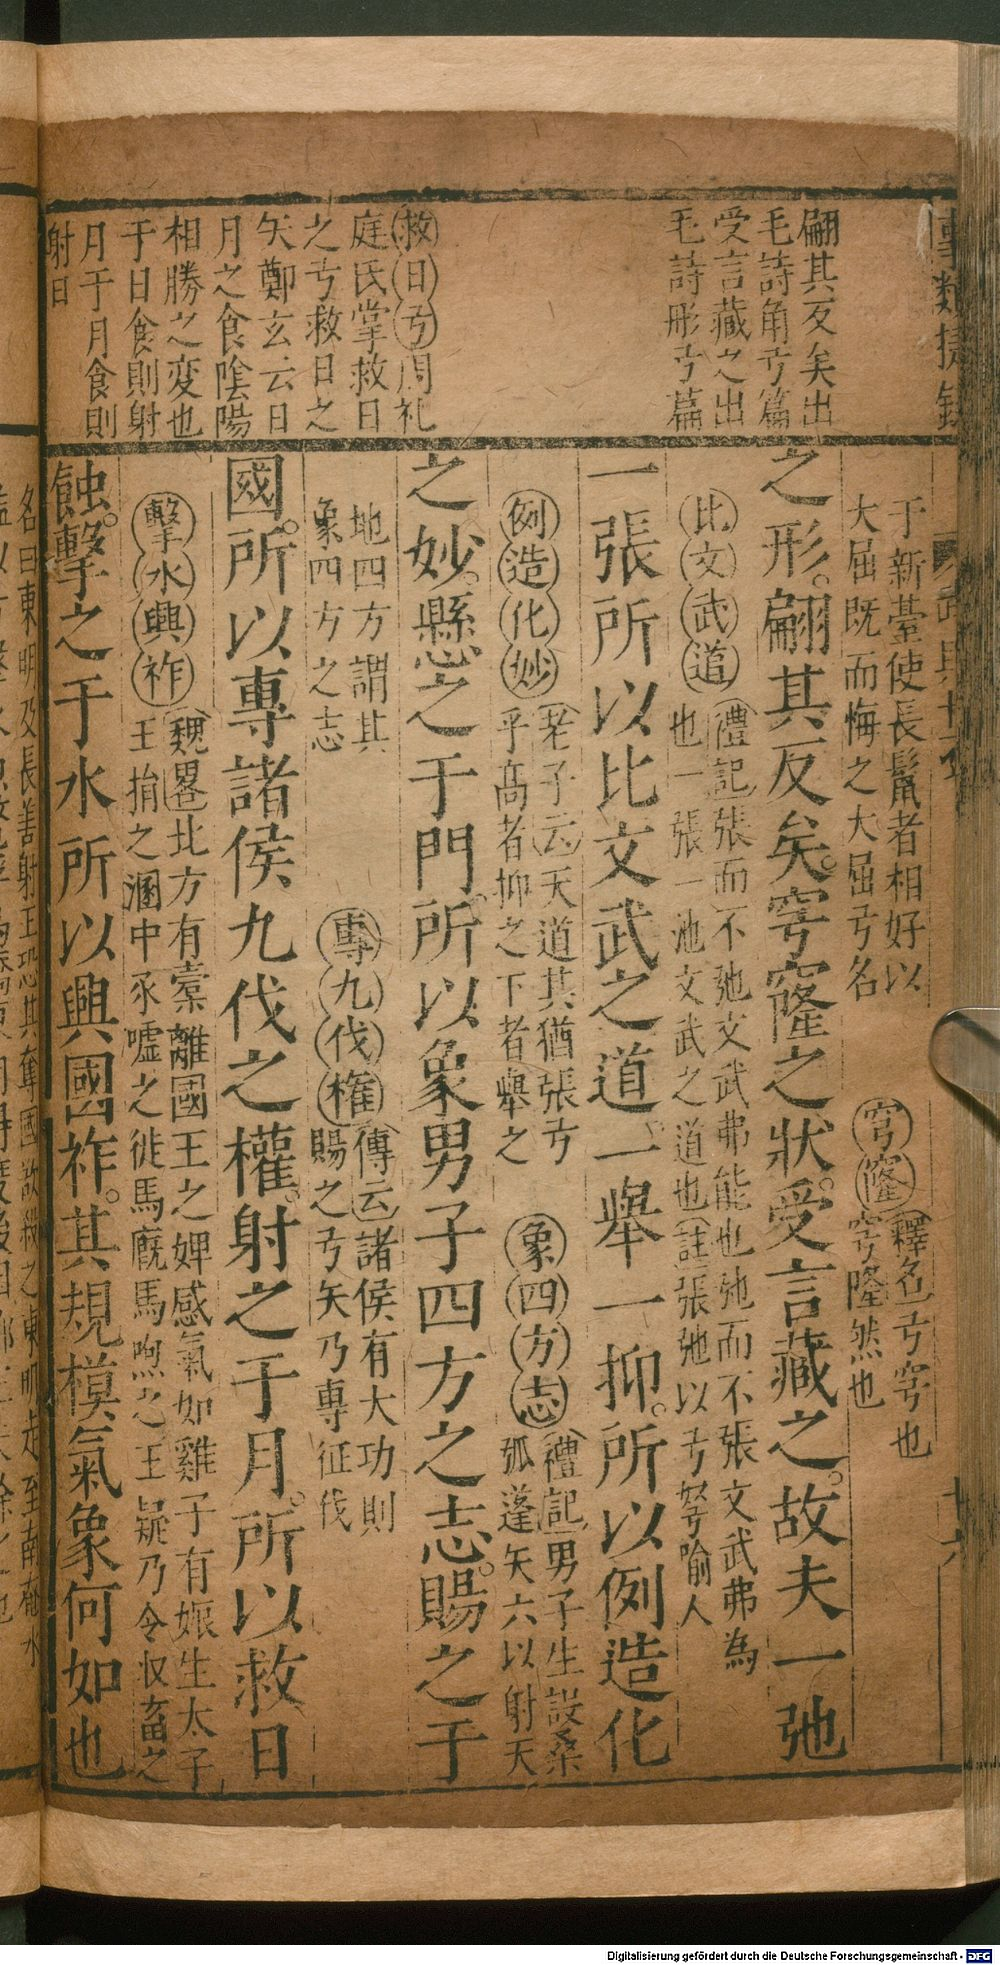 翩其反矣出
毛詩角弓篇
受言藏之出
毛詩彤弓篇
救日弓周礼
庭氏掌救日
之弓救日之
矢鄭玄云日
月之食陰陽
相勝之変也
于日食則射
月于月食則
射日
于新臺使長鬣者相好以
大屈既而悔之大屈弓名
穹窿釋名弓穹也
穹隆然也
之形。翩其反矣。穹窿之狀。受言藏之。故夫一弛
比文武道禮記張而不弛文武弗能也弛而不張文武弗為
也一張一弛文武之道也註張弛以弓弩喻人
一張所以比文武之道一舉一抑。所以例造化
例造化妙老子云天道其猶張弓
乎高者抑之下者舉之
象四方志禮記男子生設桑
弧蓬矢六以射天
之妙。懸之于門所以象男子四方之志。賜之于
地四方謂其
象四方之志
專九伐権傳云諸侯有大功則
賜之弓矢乃專征伐
國。所以專諸侯九伐之權。射之于月。所以救日
擊水興祚魏畧北方有橐離國王之婢感氣如雞子有娠生太子
王捐之溷中豕噓之徙馬廐馬呴之王疑乃令收畜之
蝕。擊之于水所以興國祚。其規模氣象何如也
名曰東明及長善射王恐其奪國欲殺之東明走至南菴水